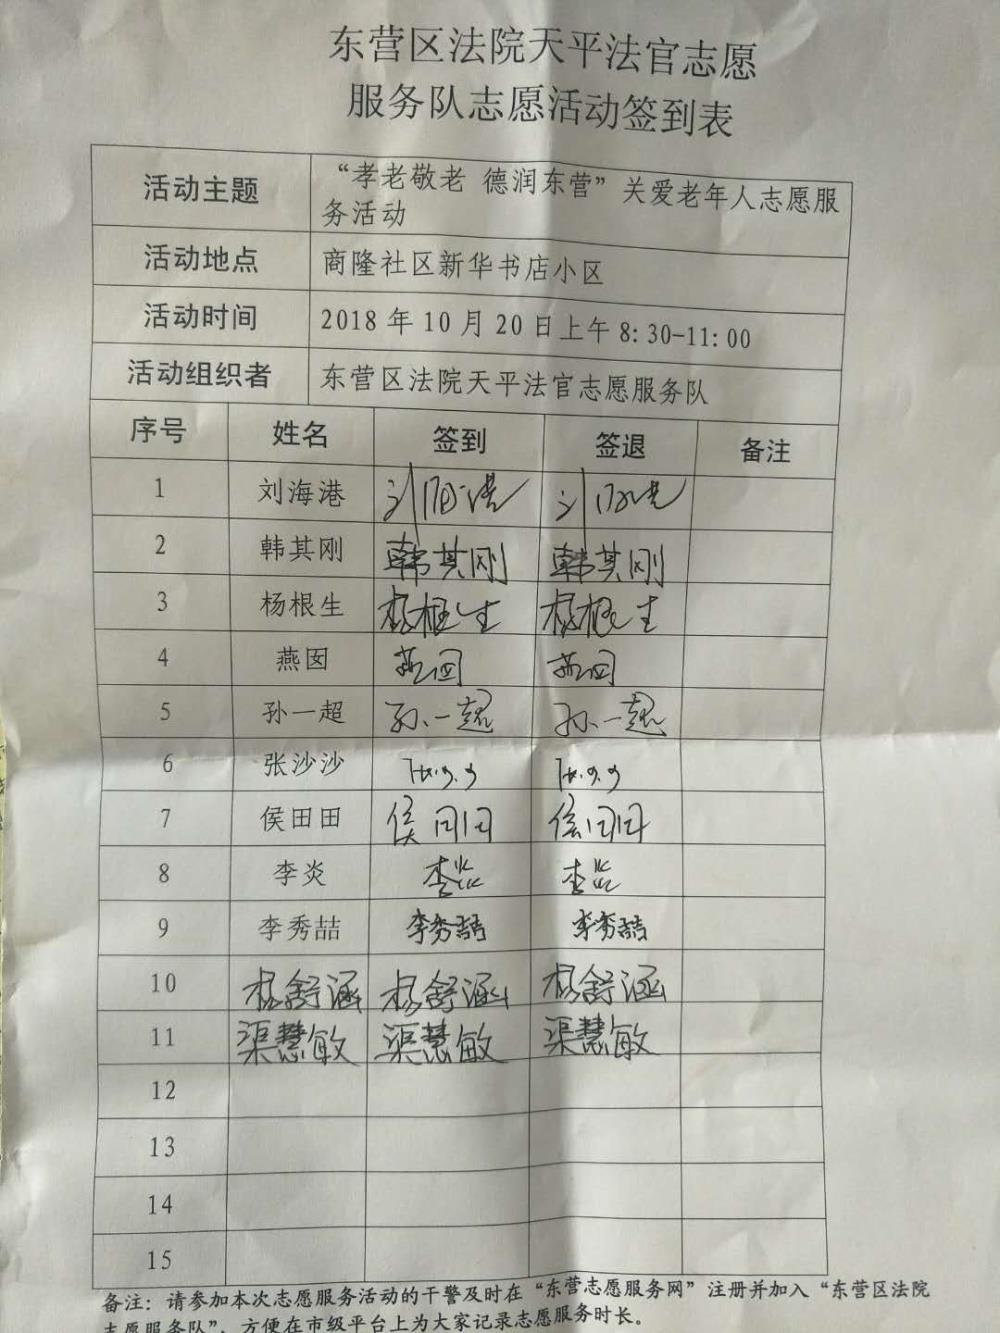 东营区法院天平法官志愿
服务队志愿活动签到表
活动主题 “孝老敬老 德润东营”关爱老年人志愿服
务活动
活动地点 商隆社区新华书店小区
活动时间 2018年10月20日上午8:30-11:00
活动组织者 东营区法院天平法官志愿服务队
序号 姓名 签到 签退 备注
1 刘海港 刘海港 刘海港
2 韩其刚 韩其刚 韩其刚
3 杨根生 杨根生 杨根生
4 燕囡 燕囡 燕囡
5 孙一超 孙一超 孙一超
6 张沙沙
7 侯田田 侯田田 侯田田
8 李炎 李炎 李炎
9 李秀喆 李秀喆 李秀喆
10 杨舒涵 杨舒涵 杨舒涵
11 渠慧敏 渠慧敏 渠慧敏
12
13
14
15
备注：请参加本次志愿服务活动的干警及时在“东营志愿服务网”注册并加入“东营区法院
志愿服务队”，方便在市级平台上为大家记录志愿服务时长。